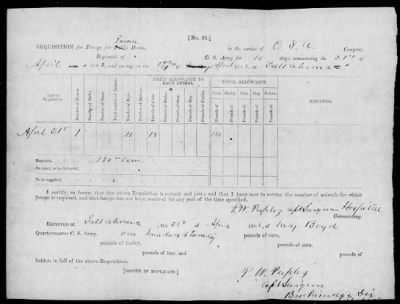 [No. 33.]
REQUISITION for Forage for Private Horse, in the service of C. S. A. Company
Regiment, of C. S. Army for 10 days commencing the 21st of
April 1863, and ending on the of April 1863, at Tullahoma
Date of Requisition.
Number of Horses.
Number of Mules.
Number of Oxen.
Total number of Animals.
Number of Days.
DAILY ALLOWANCE TO EACH ANIMAL.
Pounds of Corn.
Pounds of Barley.
Pounds of Oats.
Pounds of Hay.
Pounds of Fodder.
TOTAL ALLOWANCE.
Corn.
Barley.
Oats.
Hay.
Fodder.
Pounds.
Pounds.
Pounds.
Pounds.
Pounds.
REMARKS.
April 21st 1 10 12 120
Required, 120 Corn
On hand, to be deducted,
To be supplied,
I certify, on honor, that the above Requisition is correct and just; and that I have now in service the number of animals for which
forage is required, and that forage has not been received for any part of the time specified.
Surgeon Hospital
Commanding.
RECEIVED at Tullahoma of April 1863, of Maj Boyd
Quartermaster C. S. Army, one hundred & twenty pounds of corn,
pounds of barley, pounds of oats,
pounds of hay, and pounds of
fodder, in full of the above Requisition.
[SIGNED IN DUPLICATE]
Surgeon